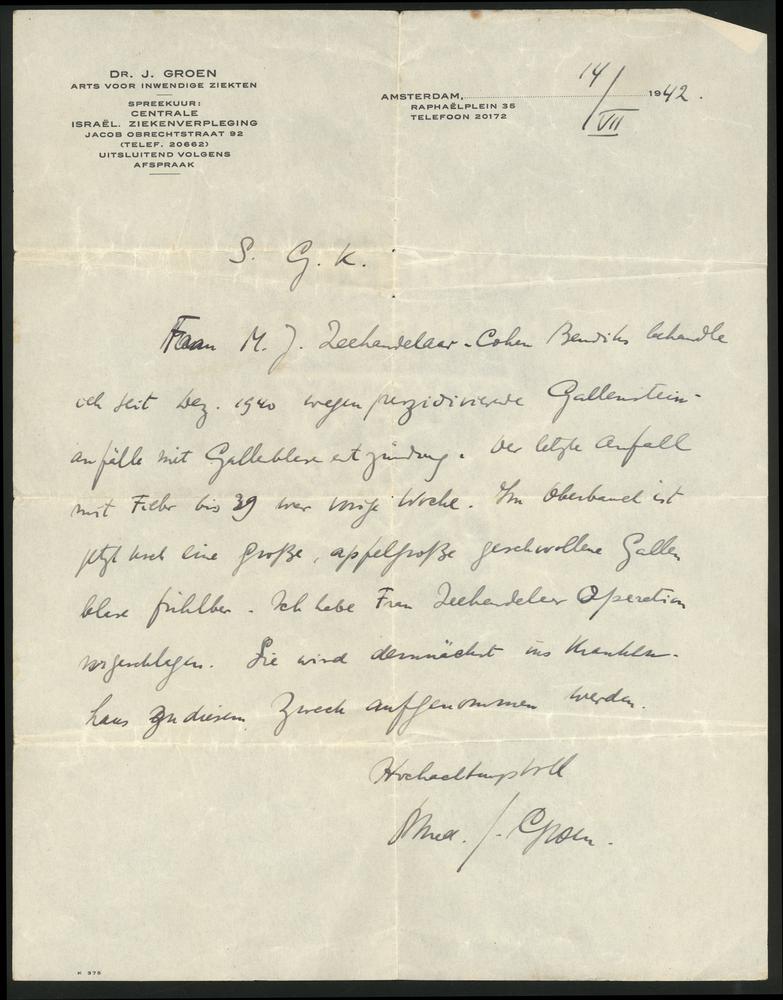 DR. J. GROEN
ARTS VOOR INWENDIGE ZIEKTEN
SPREEKUUR:
CENTRALE
ISRAËL. ZIEKENVERPLEGING
JACOB OBRECHTSTRAAT 92
(TELEF. 20662)
UITSLUITEND VOLGENS
AFSPRAAK
AMSTERDAM, 14/VII 1942.
RAPHAËLPLEIN 35
TELEFOON 20172
S. G. K.
Frau M. J. Zeehandelaar-Cohen Bendiks behandle
ich seit Dez. 1940 wegen rezidivierende Gallenstein-
anfälle mit Gallenblase entzündung. Der letzte Anfall
mit Fieber bis 39 war vorige Woche. Im Oberbauch ist
jetzt noch eine große, apfelgroße geschwollene Gallen
blase fühlbar. Ich habe Frau Zeehandelaar Operation
vorgeschlagen. Sie wird demnächst ins Kranken-
haus zu diesem Zweck aufgenommen werden.
Hochachtungsvoll
J. Groen.
K 375